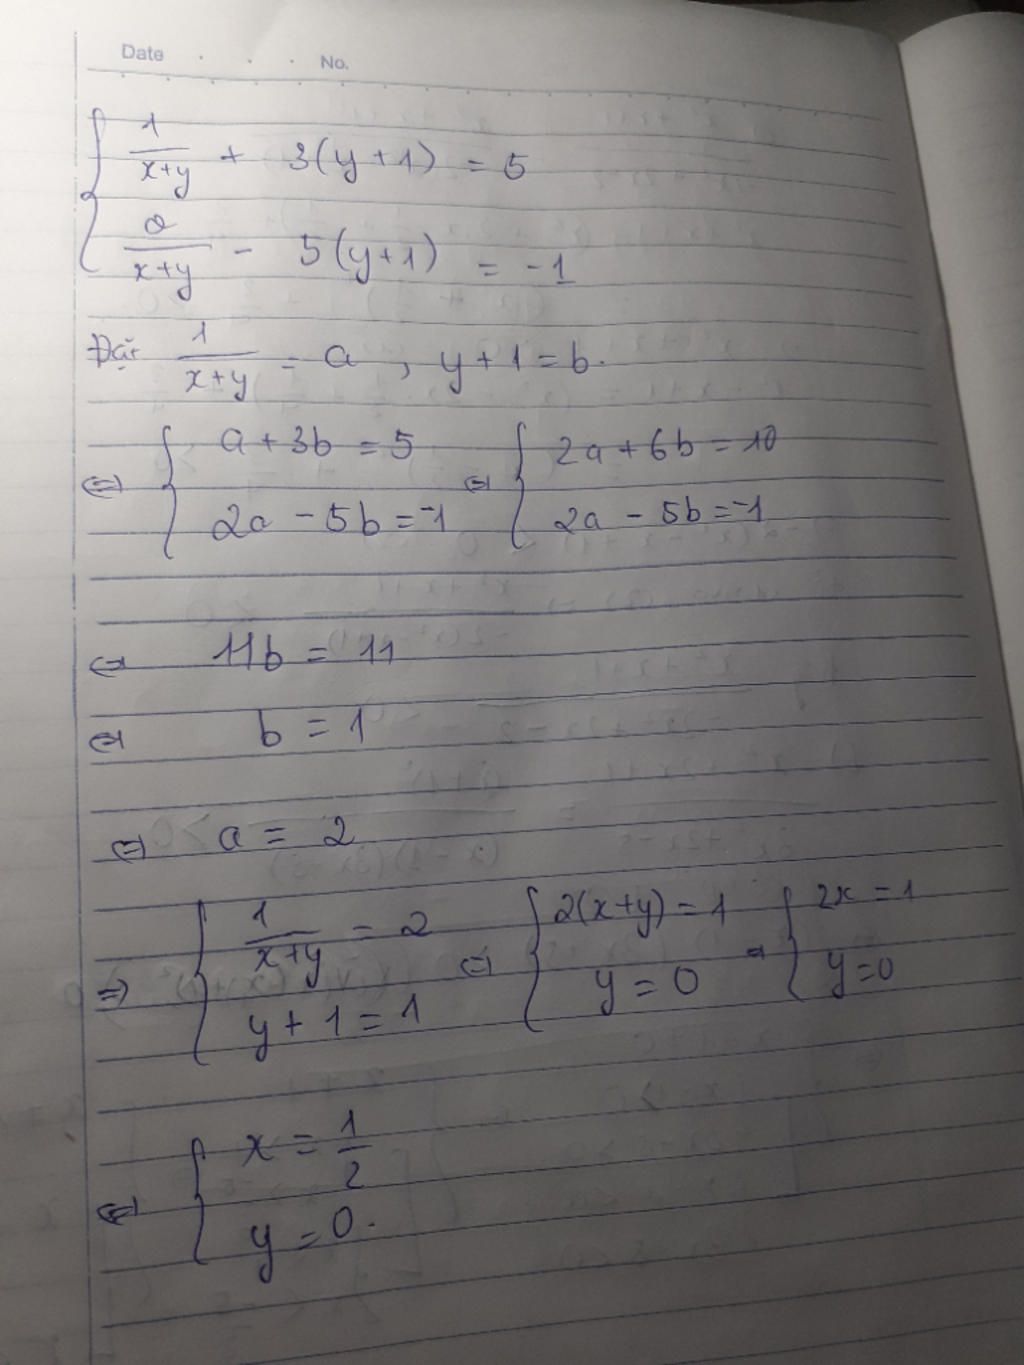 Date . . . No.
1/(x+y) + 3(y+1) = 5
2/(x+y) - 5(y+1) = -1
Đặt 1/(x+y) = a , y+1 = b.
⇔ { a+3b = 5 ⇔ { 2a+6b = 10
2a-5b = -1 2a-5b = -1
⇔ 11b = 11
⇔ b = 1
⇔ a = 2
⇒ { 1/(x+y) = 2 ⇔ { 2(x+y) = 1 ⇔ { 2x = 1
y+1 = 1 y = 0 y = 0
⇔ { x = 1/2
y = 0.